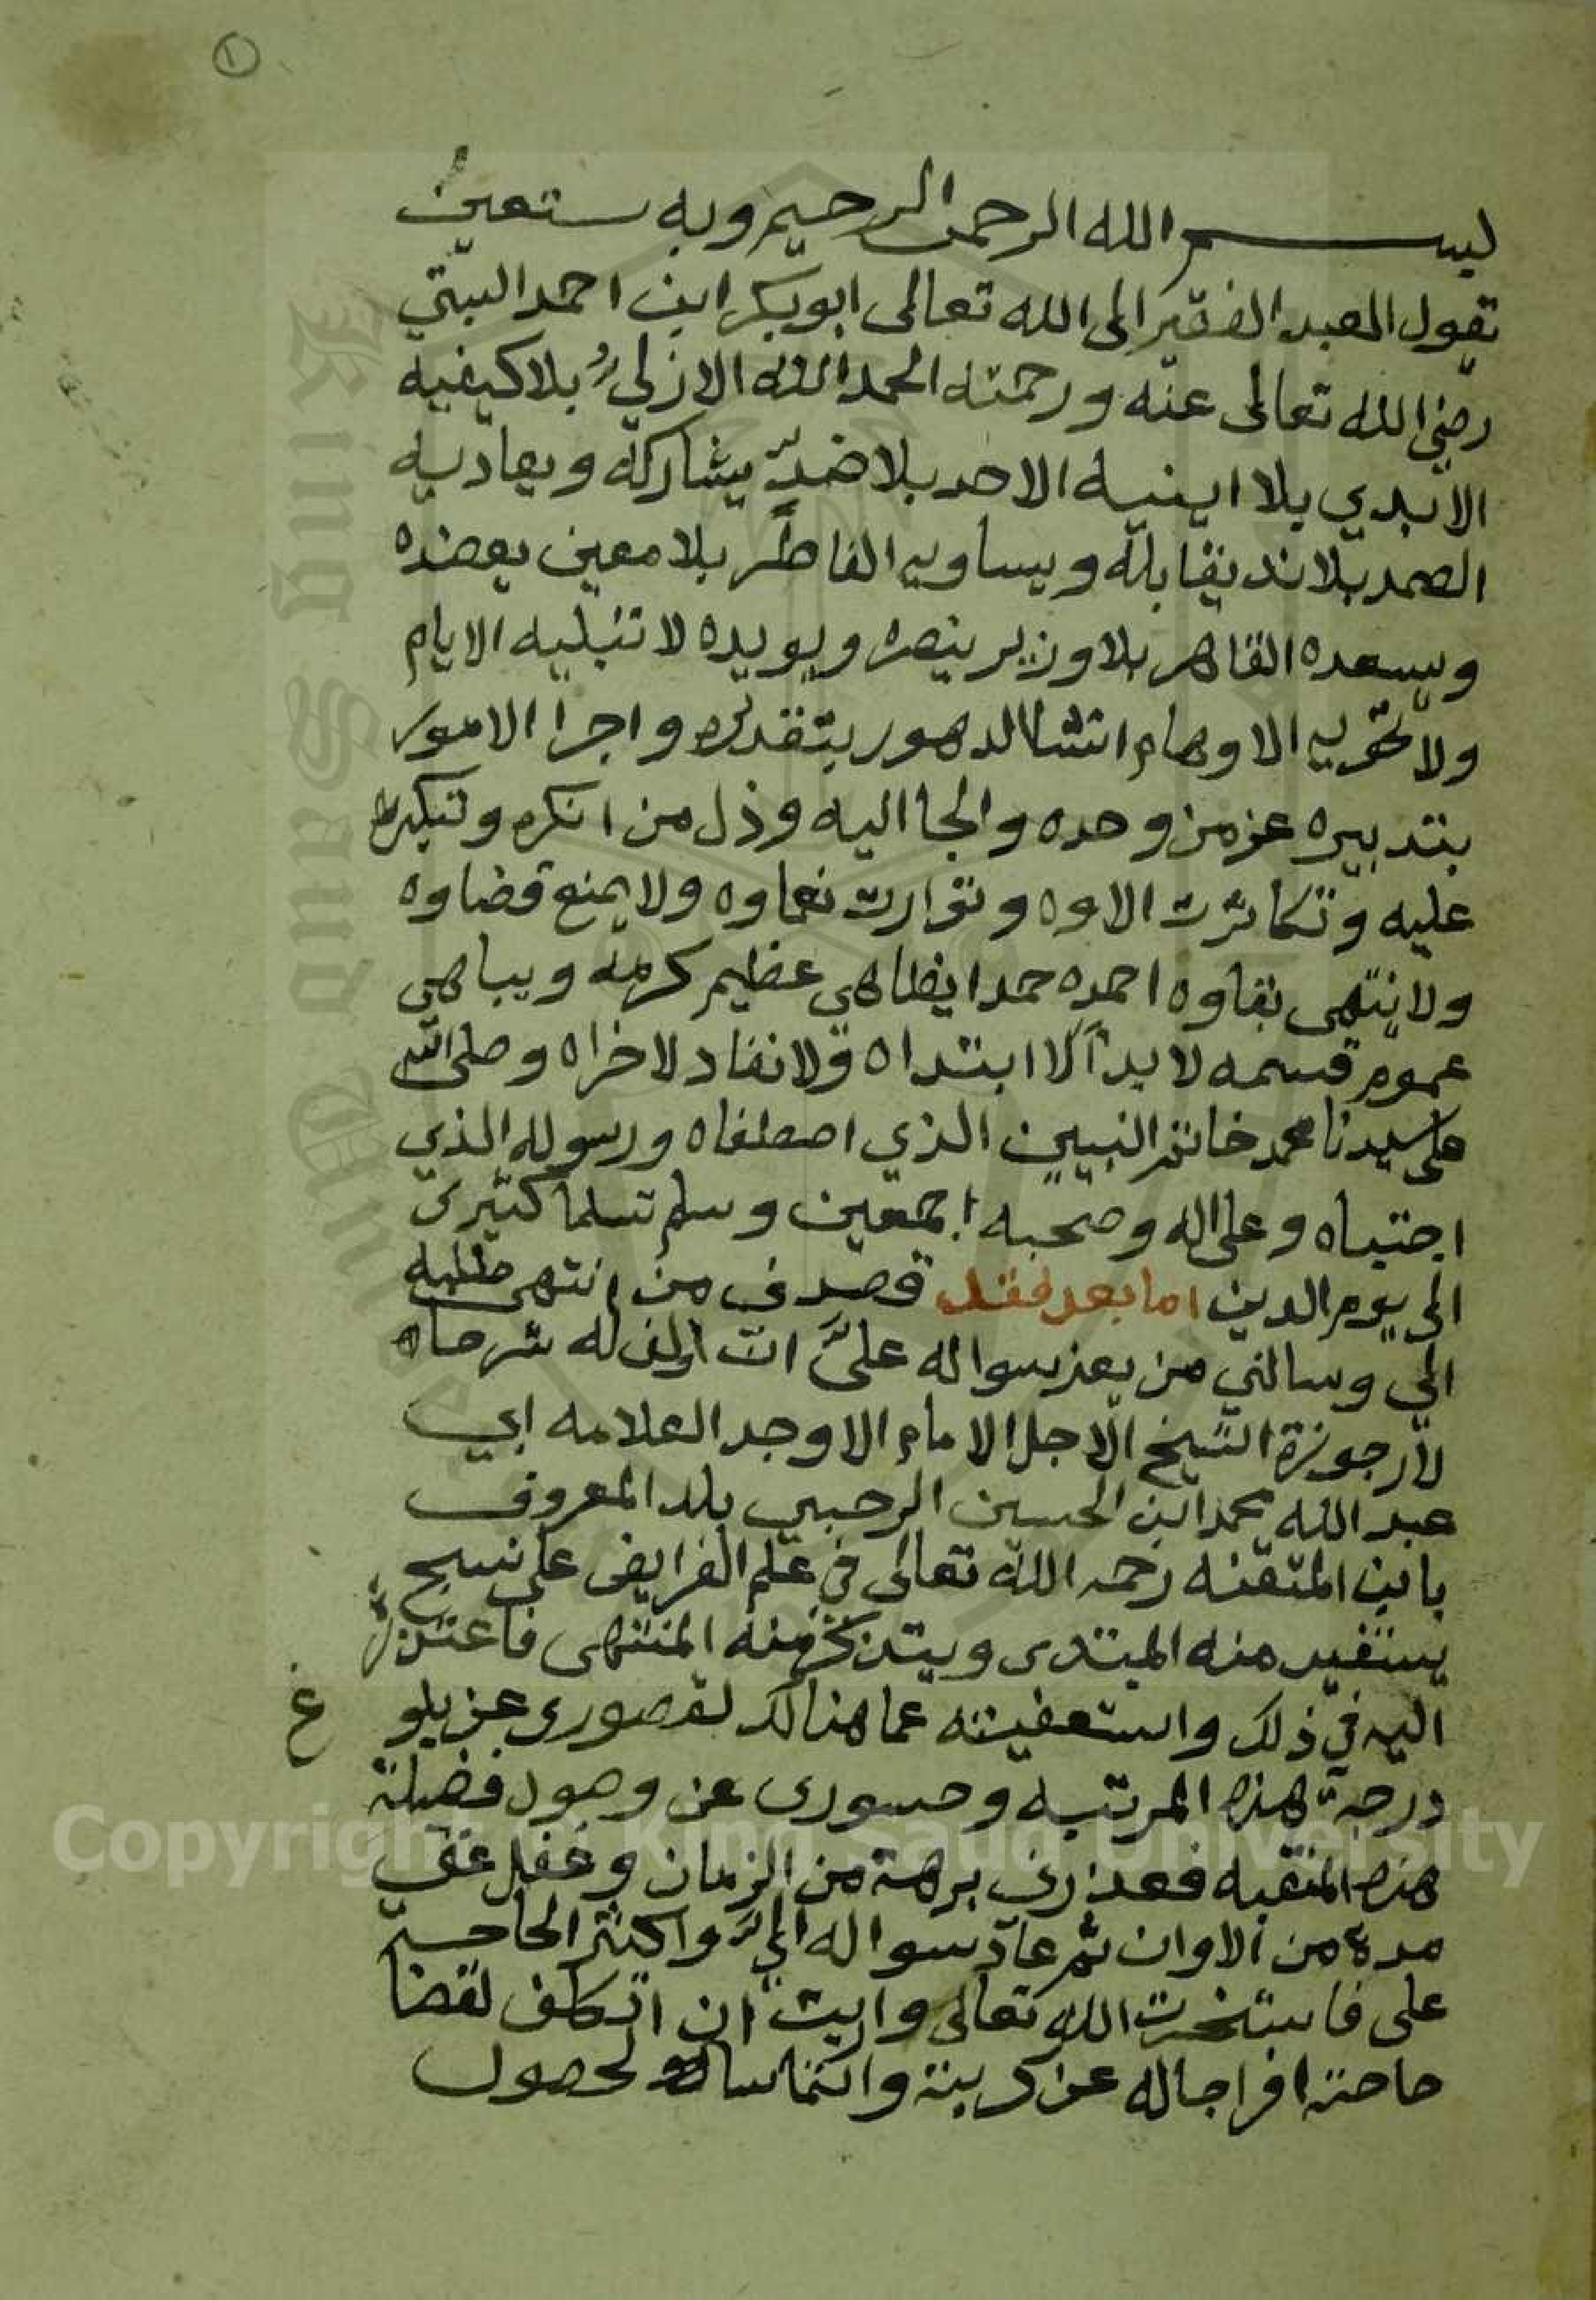 ١
بسم الله الرحمن الرحيم وبه ستعين
يقول العبد الفقير الى الله تعالى ابو بكر ابن احمد السبتي
رضي الله تعالى عنه ورحمته الحمد الله الازلي بلا كيفيه
الابدي بلا اينيه الاحد بلا ضد يشاركه ويعاديه
الصمد بلا ند يقابله ويساويه الفاطر بلا معين يعضده
ويسعده القاهر بلا وزير ينصره ويويده لا تبليه الايام
ولا تحويه الاوهام انشا الدهور بتقديره واجرا الامور
بتدبيره عز من وحده والجا اليه وذل من انكره وتكبر
عليه وتكاثرت الاوه وتوارت نعماوه ولا يمنع قضاوه
ولا ينتهى بقاوه احمده حمدا يضاهى عظيم كرمه ويباهي
عموم قسمه لا بدا لابتداه ولا نفاد لاخراه وصلى الله
على سيدنا محمد خاتم النبيين الذي اصطفاه ورسوله الذي
اجتباه وعلى اله وصحبه اجمعين وسلم تسلما كثيرى
الى يوم الدين اما بعد فقد قصدني من انتهى طلبه
الي وسالني من يعز سواله علي ان اولف له شرحاه
لارجوزة الشيخ الاجل الامام الاوحد العلامه ابي
عبد الله محمد ابن الحسين الرحبي بلد المعروف
بابن المتقنه رحمه الله تعالى في علم الفرايض على نسج
يستفيد منه المبتدى ويتذكر منه المنتهى فاعتذرت
اليه في ذلك واستعفيته عما هنالك لقصورى عن بلو
غ
درجة هذه المرتبه وحسورى عن وصول فضيلة
هذه المنقبه فعذرني برهة من الزمان وغفل عني
مدة من الاوان ثم عاد سواله الي واكثر الحاحه
على فاستخرت الله تعالى ورايت ان اتكلف لقضا
حاجته افراجا له عن كربته والتماسا لحصول
Copyright © King Saud University
King Saud University